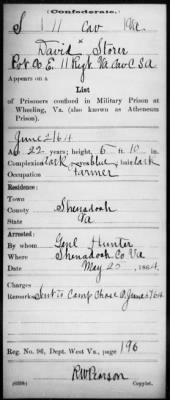 (Confederate.)
S 11 Cav Va.
David Storer
Pvt Co E. 11 Regt Va Cav C S A
Appears on a
List
of Prisoners confined in Military Prison at
Wheeling, Va. (also known as Atheneum
Prison).
June 2/64
Age 22 years; height, 6 ft. 10 in.
Complexion dark eyes blue hair dark
Occupation farmer
Residence:
Town
County Shenadoah
State Va
Arrested:
By whom Genl Hunter
Where Shenadoah Co Va
Date May 25, 1864.
Charges
Remarks Sent to Camp Chase O June 3/64
Reg. No. 96, Dept. West Va.; page 196
RW Pearson
(639b) Copyist.